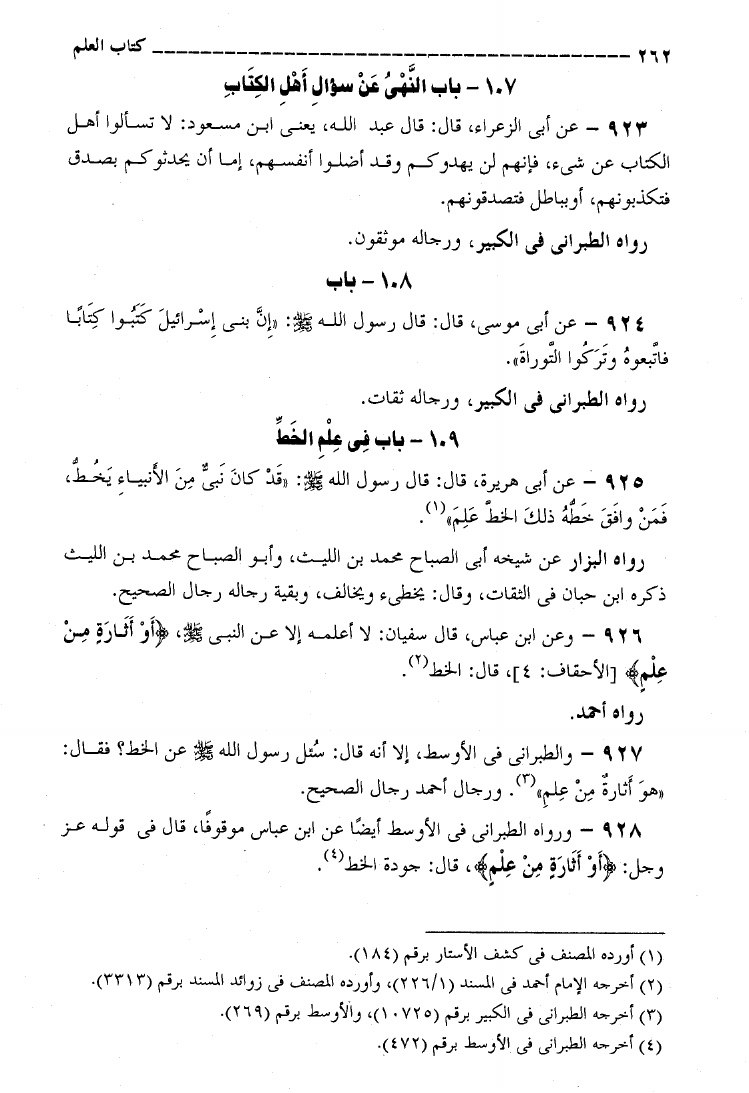 ٢٦٢ ــــــــــــــــــــــــــــــــــــــــ كتاب العلم
١٠٧ - باب النَّهْىُ عَنْ سؤالِ أَهْلِ الكِتَابِ
٩٢٣ - عن أبى الزعراء، قال: قال عبد الله، يعنى ابن مسعود: لا تسألوا أهل
الكتاب عن شىء، فإنهم لن يهدوكم وقد أضلوا أنفسهم، إما أن يحدثوكم بصدق
فتكذبونهم، أوبباطل فتصدقونهم.
رواه الطبرانى فى الكبير، ورجاله موثقون.
١٠٨ - باب
٩٢٤ - عن أبى موسى، قال: قال رسول الله ﷺ: «إِنَّ بنى إِسْرائيلَ كَتَبُوا كِتَابًا
فاتَّبعوهُ وتَرَكُوا التَّوراةَ».
رواه الطبرانى فى الكبير، ورجاله ثقات.
١٠٩ - باب فِى عِلْمِ الخَطِّ
٩٢٥ - عن أبى هريرة، قال: قال رسول الله ﷺ: «قَدْ كانَ نَبىٌّ مِنَ الأَنبياءِ يَخُطُّ،
فَمَنْ وافَقَ خَطُّهُ ذلكَ الخطَّ عَلِمَ»(١).
رواه البزار عن شيخه أبى الصباح محمد بن الليث، وأبو الصباح محمد بن الليث
ذكره ابن حبان فى الثقات، وقال: يخطىء ويخالف، وبقية رجاله رجال الصحيح.
٩٢٦ - وعن ابن عباس، قال سفيان: لا أعلمه إلا عن النبى ﷺ، ﴿أَوْ أَثَارَةٍ مِنْ
عِلْمٍ﴾ [الأحقاف: ٤]، قال: الخط(٢).
رواه أحمد.
٩٢٧ - والطبرانى فى الأوسط، إلا أنه قال: سُئل رسول الله ﷺ عن الخط؟ فقال:
«هوَ أَثارةٌ مِنْ عِلمٍ»(٣). ورجال أحمد رجال الصحيح.
٩٢٨ - ورواه الطبرانى فى الأوسط أيضًا عن ابن عباس موقوفًا، قال فى قوله عز
وجل: ﴿أَوْ أَثَارَةٍ مِنْ عِلْمٍ﴾، قال: جودة الخط(٤).
(١) أورده المصنف فى كشف الأستار برقم (١٨٤).
(٢) أخرجه الإمام أحمد فى المسند (٢٢٦/١)، وأورده المصنف فى زوائد المسند برقم (٣٣١٣).
(٣) أخرجه الطبرانى فى الكبير برقم (١٠٧٢٥)، والأوسط برقم (٢٦٩).
(٤) أخرجه الطبرانى فى الأوسط برقم (٤٧٢).